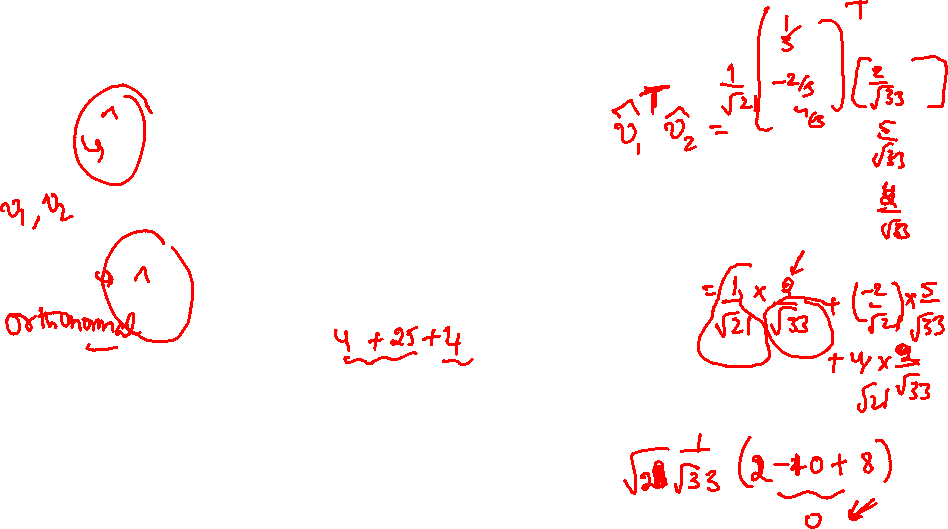 v₁, v₂
orthonormal
4 + 25 + 4
v̂₁ᵀ v̂₂ = 1/√21 [ 1/5 -2/5 4/5 ]ᵀ [ 2/√33 5/√33 2/√33 ]
= 1/√21 × 2/√33 + (-2/√21) × 5/√33
+ 4/√21 × 2/√33
√21 1/√33 (2 - 10 + 8)
0